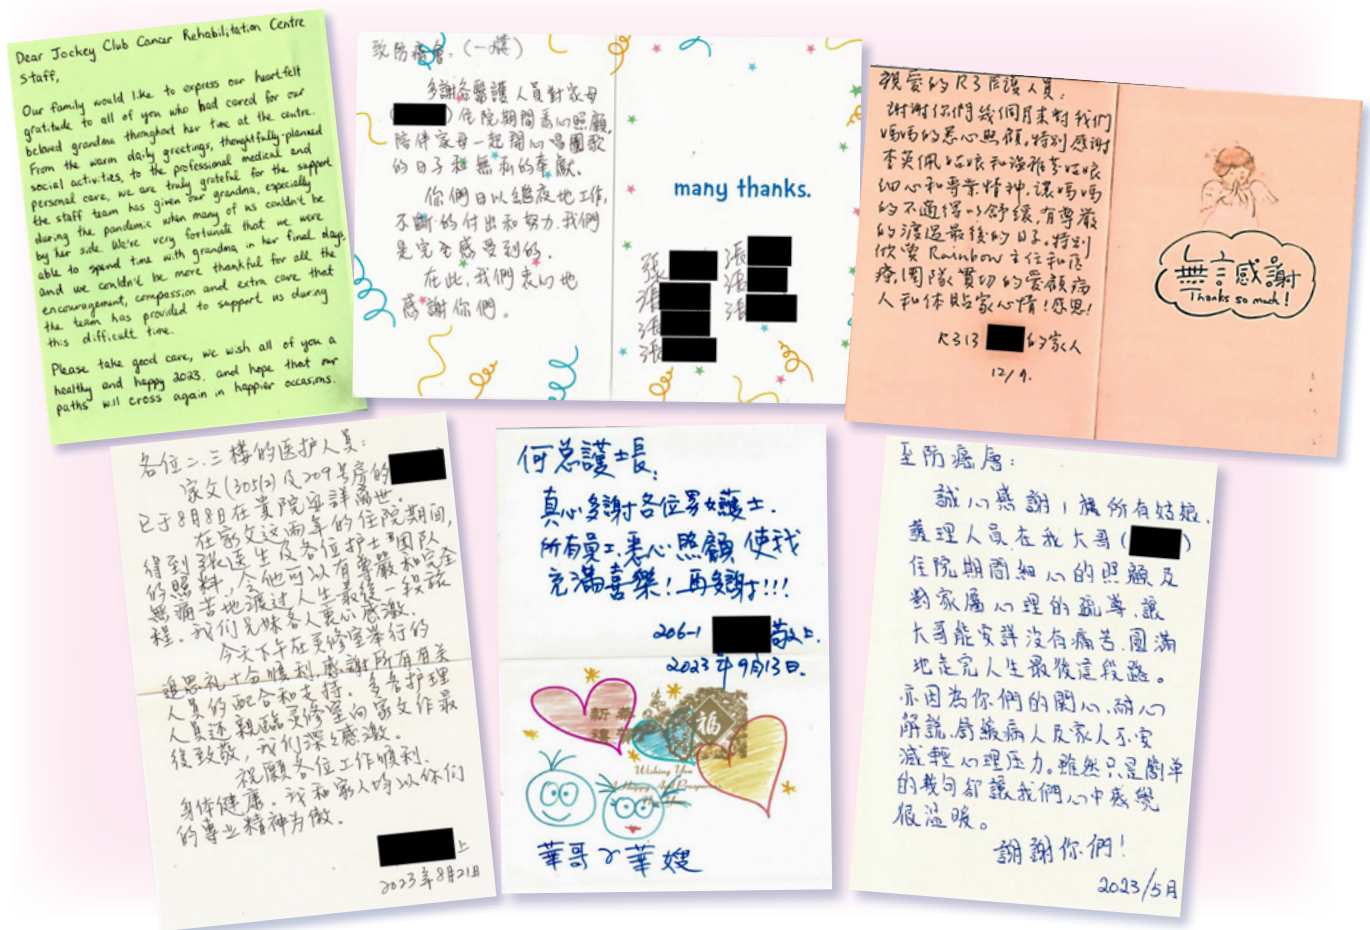 Dear Jockey Club Cancer Rehabilitation Centre
Staff,
Our family would like to express our heartfelt
gratitude to all of you who had cared for our
beloved grandma throughout her time at the centre.
From the warm daily greetings, thoughtfully-planned
social activities, to the professional medical and
personal care, we are truly grateful for the support
the staff team has given our grandma, especially
during the pandemic when many of us couldn't be
by her side. We're very fortunate that we were
able to spend time with grandma in her final days,
and we couldn't be more thankful for all the
encouragement, compassion and extra care that
the team has provided to support us during
this difficult time.
Please take good care, we wish all of you a
healthy and happy 2023, and hope that our
paths will cross again in happier occasions.
致防癌會。(一樓)
多謝各醫護人員對家母
( )住院期間悉心照顧,
陪伴家母一起開心唱團歌
的日子和無私的奉獻。
你們日以繼夜地工作,
不斷的付出和努力,我們
是完全感受到的。
在此,我們衷心地
感謝你們。
many thanks.
張 張
張 張
張 張
張
親愛的R3醫護人員:
謝謝你們幾個月來對我們
媽媽的悉心照顧,特別感謝
李英佩姑娘和溫雅芬姑娘
細心和專業精神,讓媽媽
的不適得以舒緩,有尊嚴
的渡過最後的日子。特別
欣賞Rainbow主任和醫
療團隊貫切的愛顧病
人和体貼家心情!感恩!
R313 的家人
12/9.
無言感謝
Thanks so much!
各位二、三楼的医护人员:
家父(305(2)及209号房的
已于8月8日在贵院安詳离世。
在家父这两年的住院期间,
得到张医生及各位护士團队
的照料,令他可以有尊嚴和完全
無痛苦地渡过人生最後一段路
程。我们兄妹各人衷心感激。
今天下午在灵修室举行的
追思礼十分顺利,感謝所有有关
人員的配合和支持。多名护理
人员还親臨灵修室向家父作最
後致敬,我们深之感激。
祝願各位工作顺利、
身体健康。我和家人均以你们
的專业精神为傲。
上
2023年8月21日
何总護士長:
真心多謝各位男女護士.
所有員工,悉心照顧,使我
充滿喜樂!再多謝!!!
206-1 敬上.
2023年9月13日.
新春
福
Wishing You
A Happy And Prosperous
New Year
華哥&華嫂
至防癌會:
誠心感謝1樓所有姑娘.
護理人員,在我大哥( )
住院期間細心的照顧及
對家屬心理的疏導,讓
大哥能安詳沒有痛苦,圓滿
地走完人生最後這段路。
亦因為你們的關心,耐心
解說,舒緩病人及家人不安
減輕心理压力。雖然只是簡單
的幾句卻讓我們心中感覺
很溫暖。
謝謝你們!
2023/5月